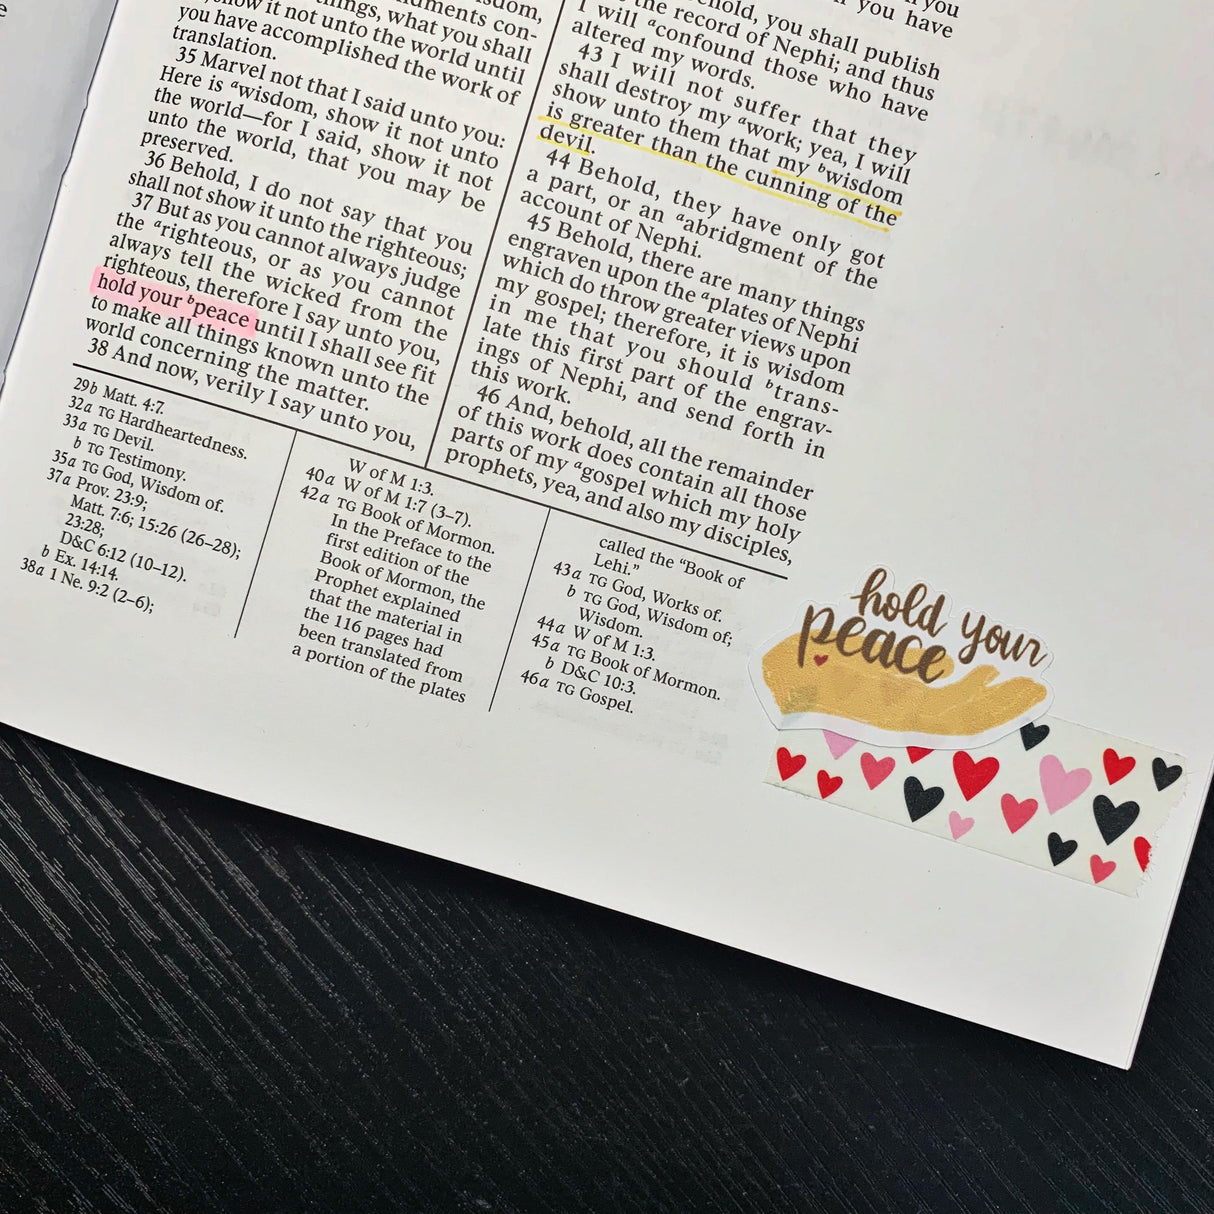 e
sdom,
uments con-
ings, what you shall
show it not unto the world until
you have accomplished the work of
translation.
35 Marvel not that I said unto you:
Here is ᵃwisdom, show it not unto
the world—for I said, show it not
unto the world, that you may be
preserved.
36 Behold, I do not say that you
shall not show it unto the righteous;
37 But as you cannot always judge
the ᵃrighteous, or as you cannot
always tell the wicked from the
righteous, therefore I say unto you,
hold your ᵇpeace until I shall see fit
to make all things known unto the
world concerning the matter.
38 And now, verily I say unto you,
you
you have
hold, you shall publish
the record of Nephi; and thus
I will ᵃconfound those who have
altered my words.
43 I will not suffer that they
shall destroy my ᵃwork; yea, I will
show unto them that my ᵇwisdom
is greater than the cunning of the
devil.
44 Behold, they have only got
a part, or an ᵃabridgment of the
account of Nephi.
45 Behold, there are many things
engraven upon the ᵃplates of Nephi
which do throw greater views upon
my gospel; therefore, it is wisdom
in me that you should ᵇtrans-
late this first part of the engrav-
ings of Nephi, and send forth in
this work.
46 And, behold, all the remainder
of this work does contain all those
parts of my ᵃgospel which my holy
prophets, yea, and also my disciples,
29b Matt. 4:7.
32a TG Hardheartedness.
33a TG Devil.
b TG Testimony.
35a TG God, Wisdom of.
37a Prov. 23:9;
Matt. 7:6; 15:26 (26–28);
23:28;
D&C 6:12 (10–12).
b Ex. 14:14.
38a 1 Ne. 9:2 (2–6);
W of M 1:3.
40a W of M 1:7 (3–7).
42a TG Book of Mormon.
In the Preface to the
first edition of the
Book of Mormon, the
Prophet explained
that the material in
the 116 pages had
been translated from
a portion of the plates
called the “Book of
Lehi.”
43a TG God, Works of.
b TG God, Wisdom of;
Wisdom.
44a W of M 1:3.
45a TG Book of Mormon.
b D&C 10:3.
46a TG Gospel.
hold your
peace